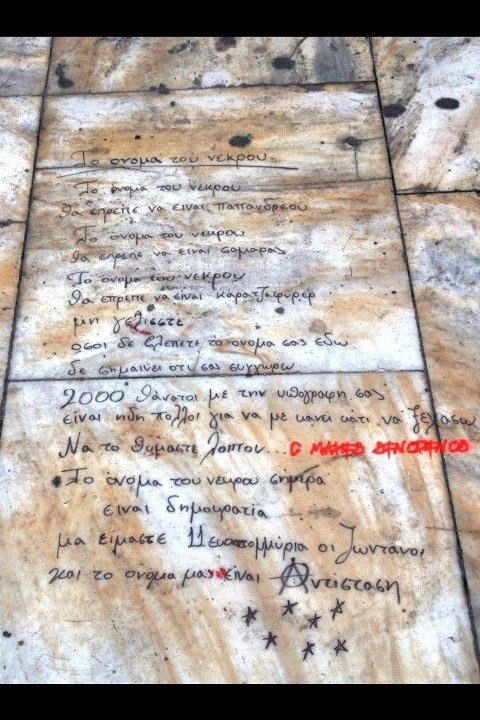 Το ονομα του νεκρου
Το ονομα του νεκρου
θα επρεπε να ειναι παπανδρεου
Το ονομα του νεκρου
θα επρεπε να ειναι σαμαρας
Το ονομα του νεκρου
θα επρεπε να ειναι καρατζαφυρερ
μη γελιεστε
οσοι δε βλεπετε το ονομα σας εδω
δε σημαινει οτι σας συγχωρω
2000 θανατοι με την υπογραφη σας
ειναι ηδη πολλοι για να με κανει κατι να ξεχασω
Να το θυμαστε λοιπον...
Το ονομα του νεκρου σημερα
ειναι δημοκρατια
μα είμαστε 11εκατομμύρια οι ζωντανοι
και το ονομα μας ειναι Αντισταση